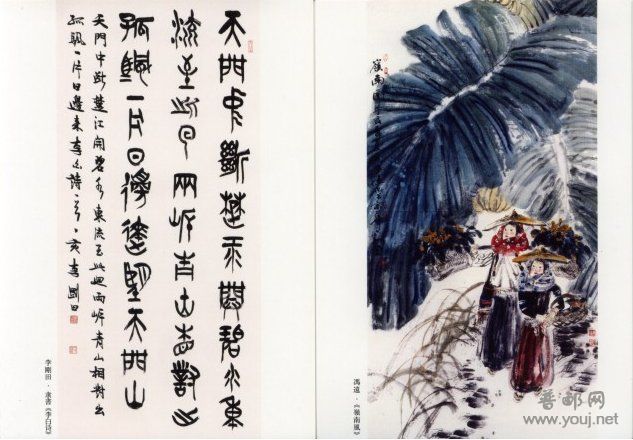 天門中斷楚江開碧水東
流至此回兩岸青山相對出
孤帆一片日邊來望天門山
天門中斷楚江開碧水東流至此迴兩岸青山相對出
孤帆一片日邊來李白詩 李剛田
李剛田·隶書《李白诗》
嶺南
馮遠·《嶺南風》
邮网
www.youj.net